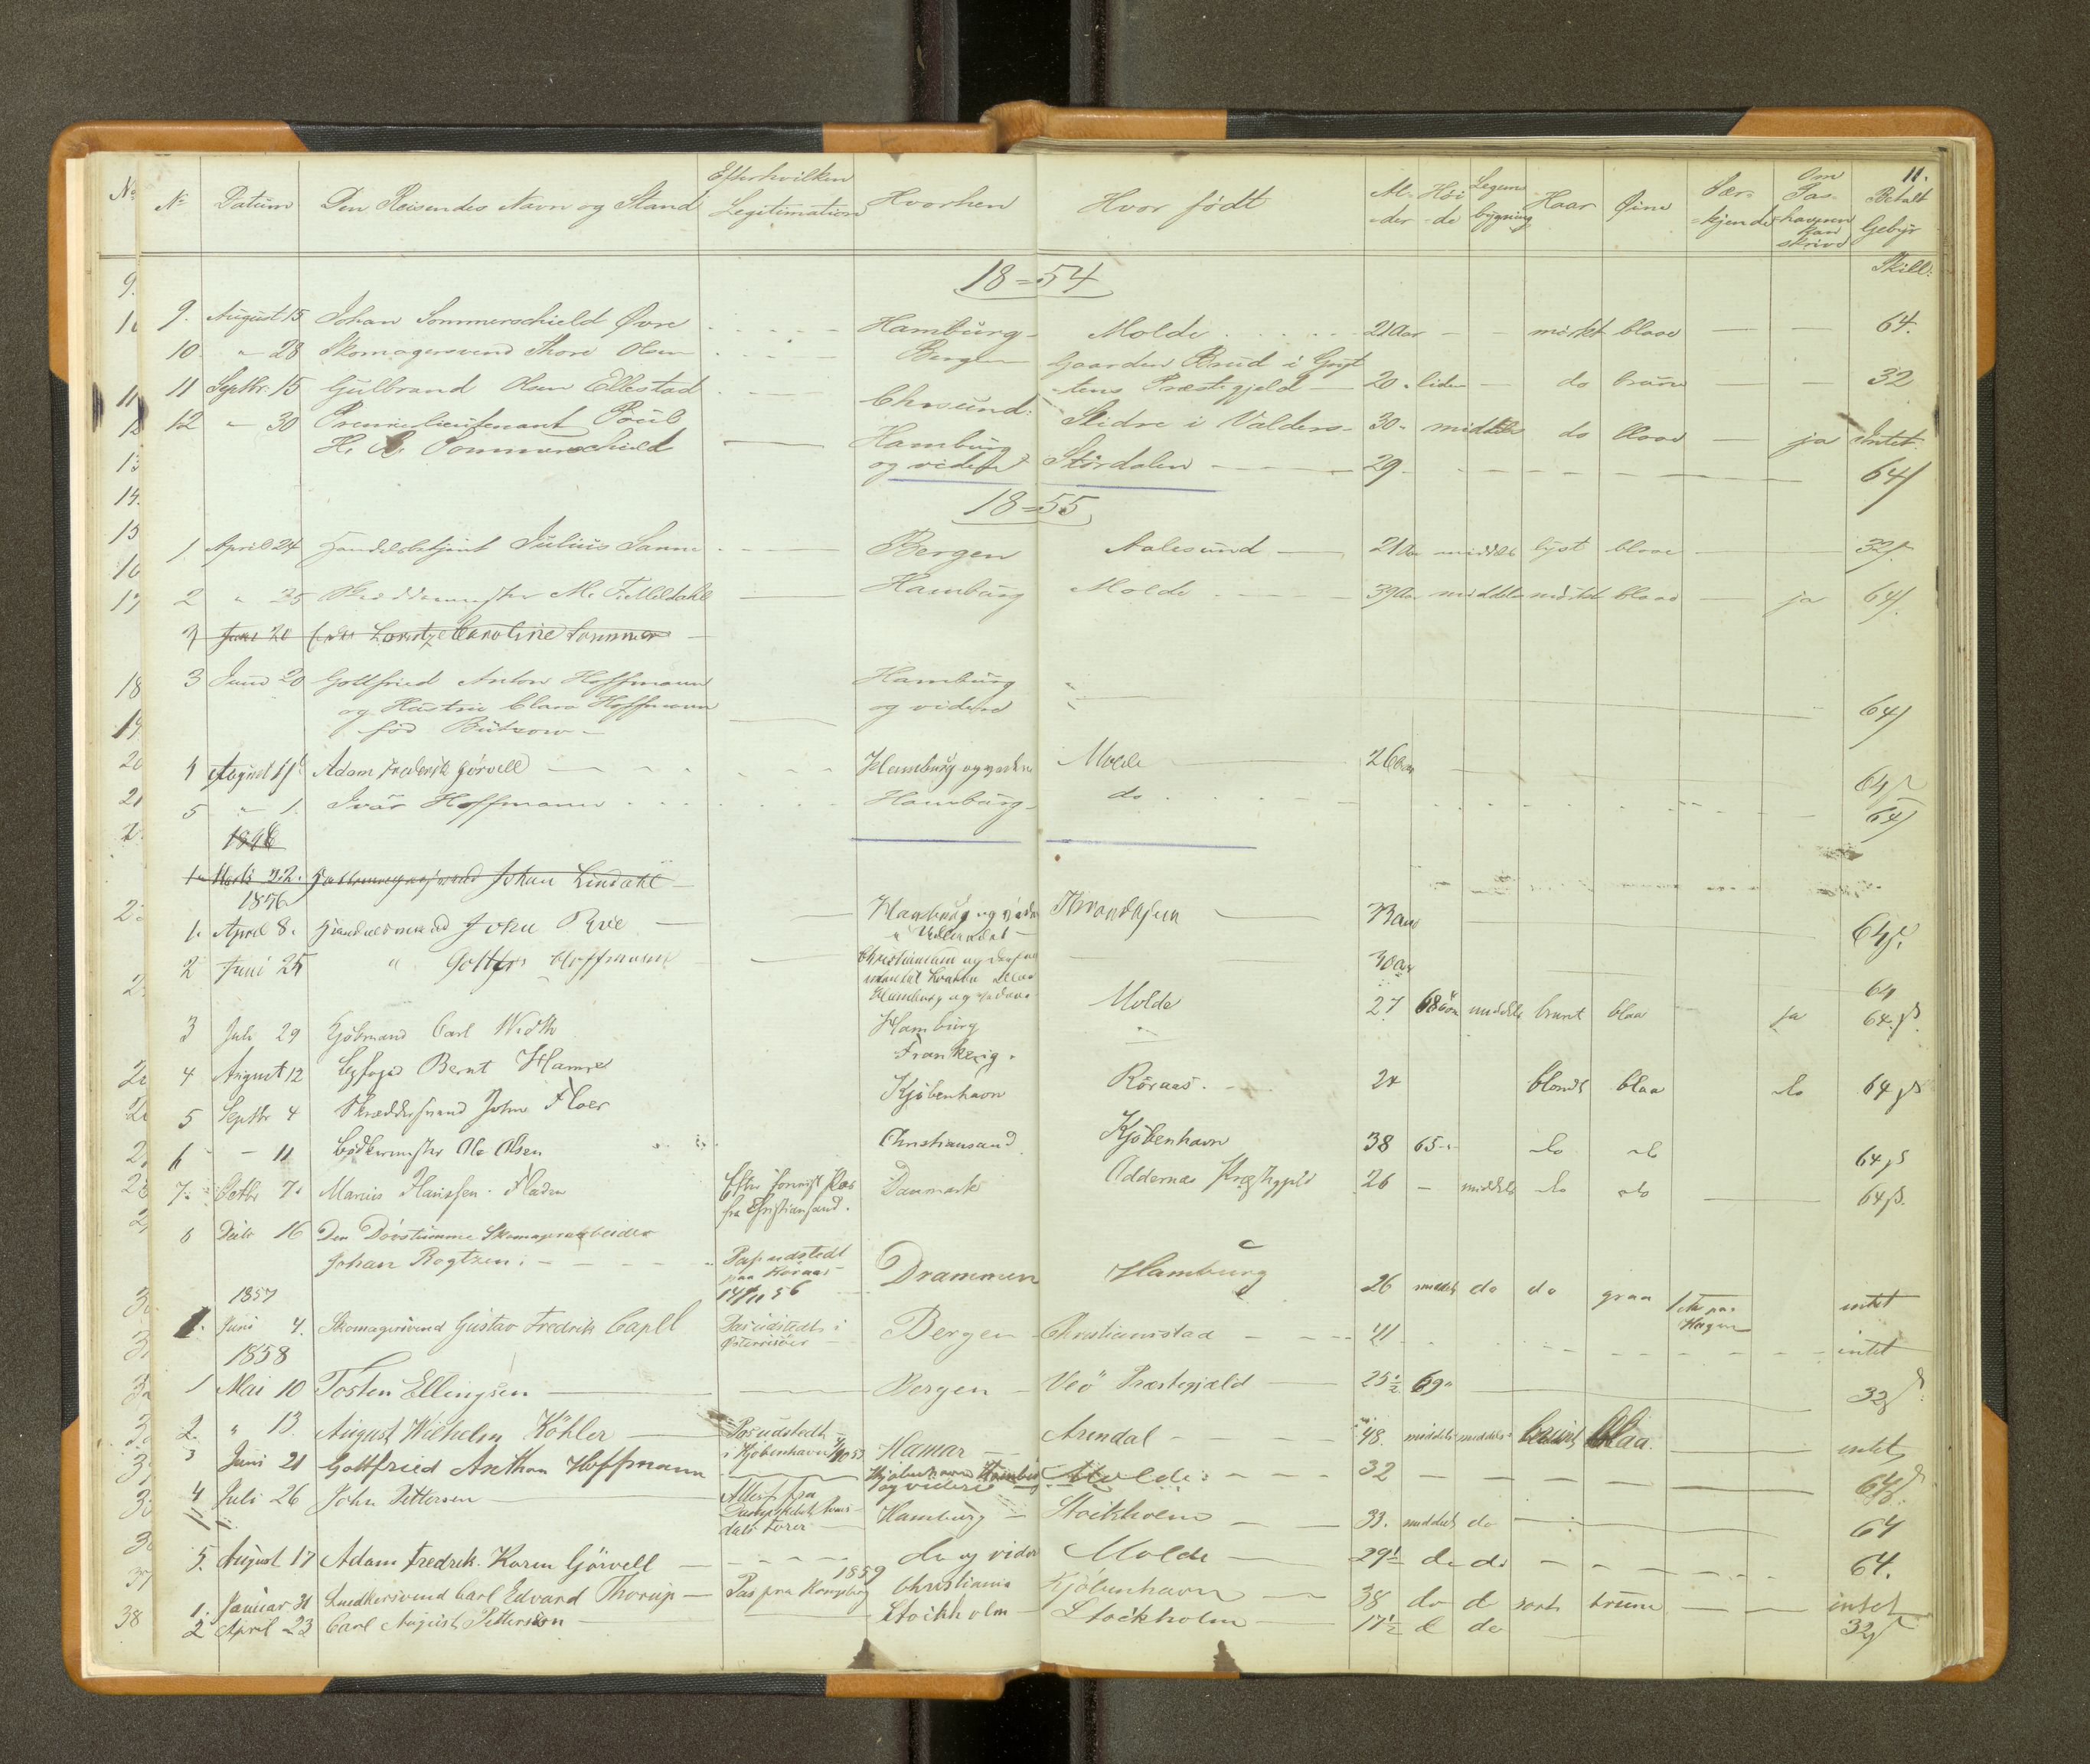 11.
No No Datum Den Reisendes Navn og Stand Efterhvilken Legitimation Hvorhen Hvor født Al-der Høi-de Legems bygning Haar Øine Sær-kjende Om Pas-haveren kan skrive Betalt Gebyr
Skill:
18=54
9. August 15 Johan Sommerschield Øvre Hamburg Molde 21 Aar mørkt blaae 64.
10 " 28 Skomagersvend Thore Olsen Bergen Gaarden Brud i Gryt-tens Præstegjeld 20 liden do brune 32
11 Septbr. 15 Gulbrand Olsen Ellestad Chrsund: Slidre i Valders 30 middels do blaae ja Intet
12 " 30 Premierlieutenant Poul
H. A. Sommerschield Hamburg og videre Stördalen 29 64
18=55
1 April 24 Handelsbetjent Julius Sanne Bergen Aalesund 21 Aar middels lyst blaae 32
2 " 25 M. F. Meldahl Hamburg Molde 39 Aar middels mörkt blaae ja 64
3 Juni 20 Lorentze Caroline Sommer
3 Juni 20 Gottfried Anton Hoffmann Hamburg
og Hustrue Clara Hoffmann og videre 64
fød Bützow
4 August Adam Frederik Görvell Hamburg og videre Molde 26 Aar 64
5 " 1. Ivar Hoffmann Hamburg do 64
1. Johan Lindahl
1856
1. April 8. Handelsmand John Hamburg og videre 64
2 Juni 25 " Gottfr. Hoffmann Christiania og 30 Aar
Hamburg og videre 64
3 Juli 29 Kjöbmand Carl Hamburg Molde 27 68 middels brunt blaa ja 64
Frankrig
4 August 12 Byfoged Bernt Kjöbenhavn Röraas 24 blondt blaa do 64
5 Septbr 4 Skræddersvend John Floer Christiansand Kjöbenhavn 38 65 do do 64
6 - 11 Bödkermester Ole Olsen
7. Octbr 7. Marius Hanssen Efter forevist Pas fra Christiansand. Danmark Oddernæs Præstegjeld 26 - middels do do 64
8 16 Den Dövstumme Skomagerarbeider
Johan Rogtzen Pas udstedt paa Röraas 56 Drammen Hamburg 26 middels do do graa intet
1857
1. Juni 4. Skomagersvend Gustav Fredrik Capll Pas udstedt i Österrisöer Bergen Christianstad 41 intet
1858
1 Mai 10 Tosten Ellingsen Bergen Veö Præstegjæld 25½ 69 32
2. " 13. August Wilhelm Köhler Pas udstedt i Kjöbenhavn Hamar Arendal 48. middels middels brunt blaa intet
3 Juni 21 Gottfried Anthon Hoffmann Kjöbenhavn Hamburg og videre Molde 32 64
4 Juli 26 John Pettersen Attest fra Hamburg Stockholm 33. middels do 64
5. August 17 Adam Fredrik Karen Görvell do og videre Molde 29½ do do 64.
1859
1. Januar 31 Snedkersvend Carl Edvard Thorup Pas fra Kongsberg Christiania Kjöbenhavn 38 do do sort brune intet
2 April 23 Carl August Petterson Stockholm Stockholm 17½ do do 32